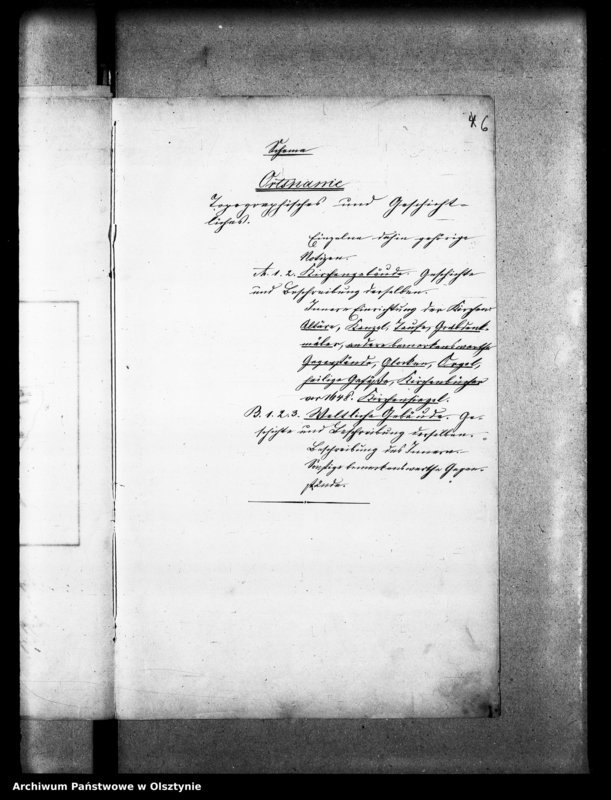 4 6
Schema
Ortsname
Topographisches und Geschicht-
liches.
Einzelne dahin gehörige
Notizen.
A. 1. 2. Kirchengebäude. Geschichte
und Beschreibung derselben.
Innere Einrichtung der Kirchen
Altäre, Kanzel, Taufe, Grabdenk-
mäler, andere bemerkenswerthe
Gegenstände, Glocken, Orgel,
heilige Gefäße, Kirchenbücher
vor 1648. Kirchensiegel.
B. 1. 2. 3. Weltliche Gebäude. Ge-
schichte und Beschreibung derselben.
Beschreibung des Innern.
Sonstige bemerkenswerthe Gegen-
stände.
Archiwum Państwowe w Olsztynie